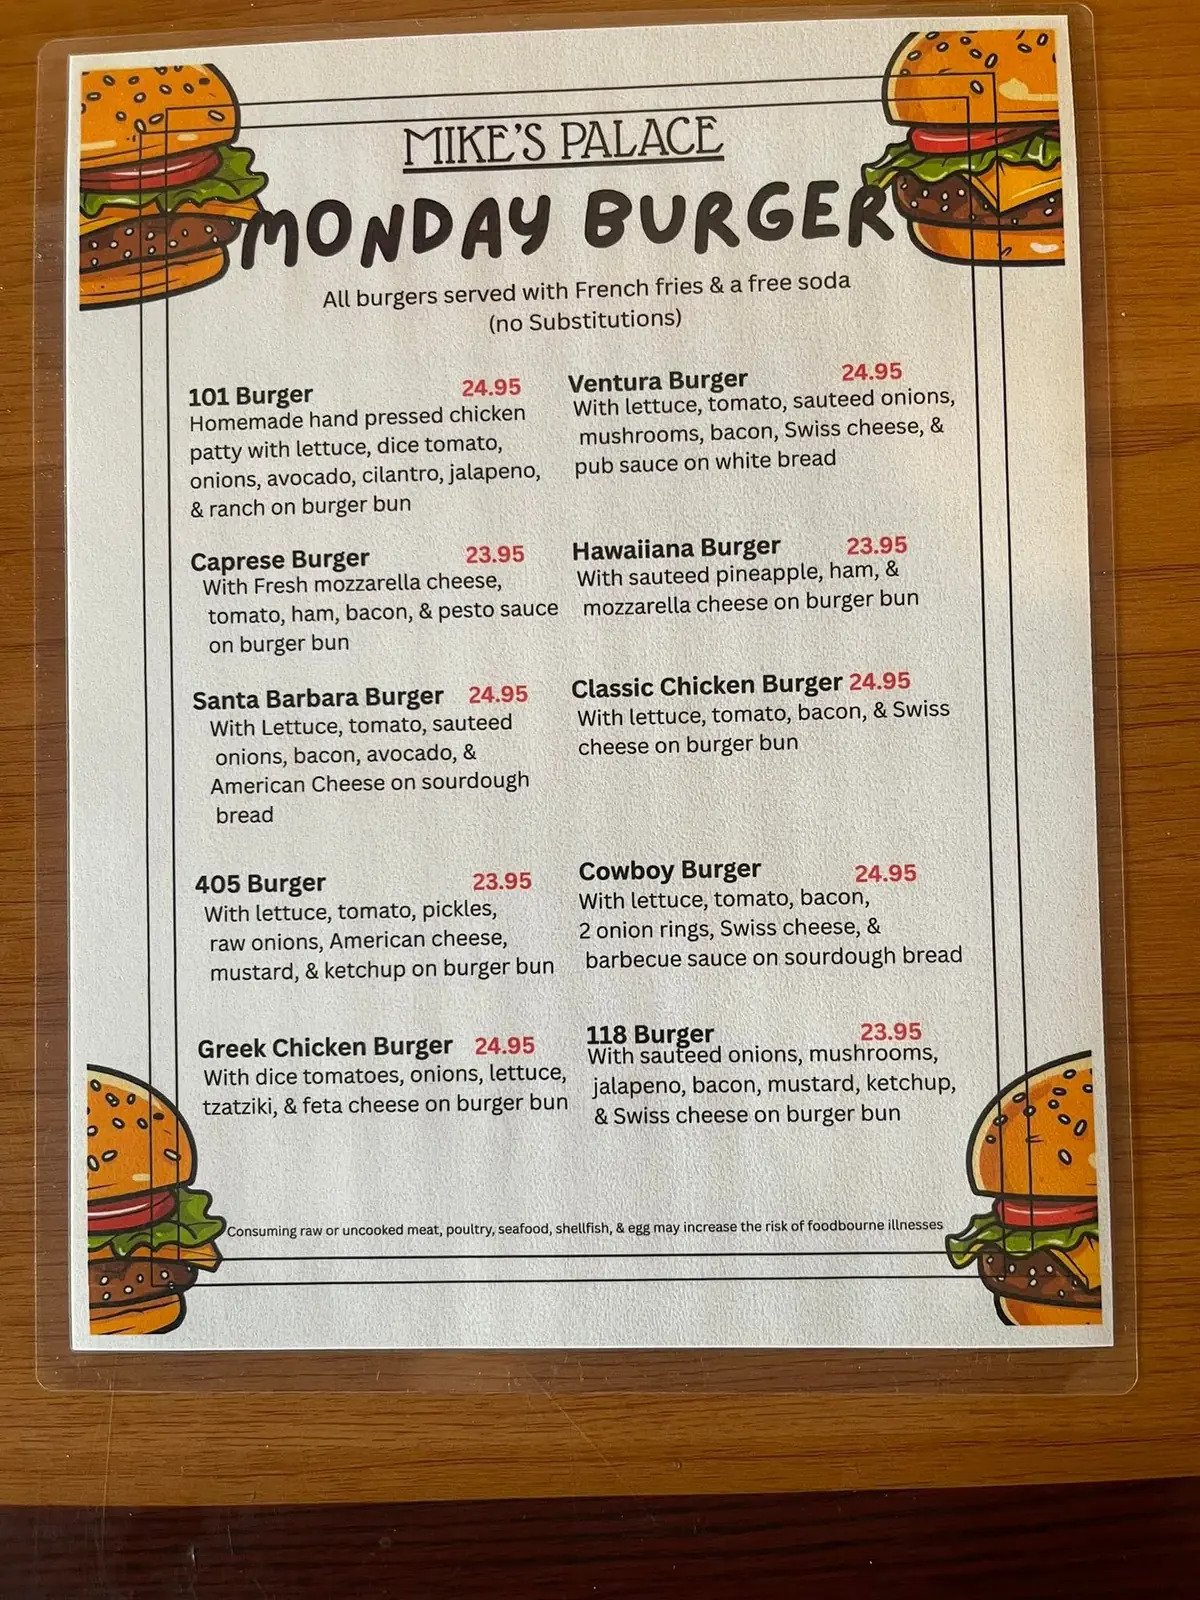 MIKE'S PALACE
MONDAY BURGER
All burgers served with French fries & a free soda
(no Substitutions)
101 Burger 24.95
Homemade hand pressed chicken
patty with lettuce, dice tomato,
onions, avocado, cilantro, jalapeno,
& ranch on burger bun
Caprese Burger 23.95
With Fresh mozzarella cheese,
tomato, ham, bacon, & pesto sauce
on burger bun
Santa Barbara Burger 24.95
With Lettuce, tomato, sauteed
onions, bacon, avocado, &
American Cheese on sourdough
bread
405 Burger 23.95
With lettuce, tomato, pickles,
raw onions, American cheese,
mustard, & ketchup on burger bun
Greek Chicken Burger 24.95
With dice tomatoes, onions, lettuce,
tzatziki, & feta cheese on burger bun
Ventura Burger 24.95
With lettuce, tomato, sauteed onions,
mushrooms, bacon, Swiss cheese, &
pub sauce on white bread
Hawaiiana Burger 23.95
With sauteed pineapple, ham, &
mozzarella cheese on burger bun
Classic Chicken Burger 24.95
With lettuce, tomato, bacon, & Swiss
cheese on burger bun
Cowboy Burger 24.95
With lettuce, tomato, bacon,
2 onion rings, Swiss cheese, &
barbecue sauce on sourdough bread
118 Burger 23.95
With sauteed onions, mushrooms,
jalapeno, bacon, mustard, ketchup,
& Swiss cheese on burger bun
Consuming raw or uncooked meat, poultry, seafood, shellfish, & egg may increase the risk of foodbourne illnesses